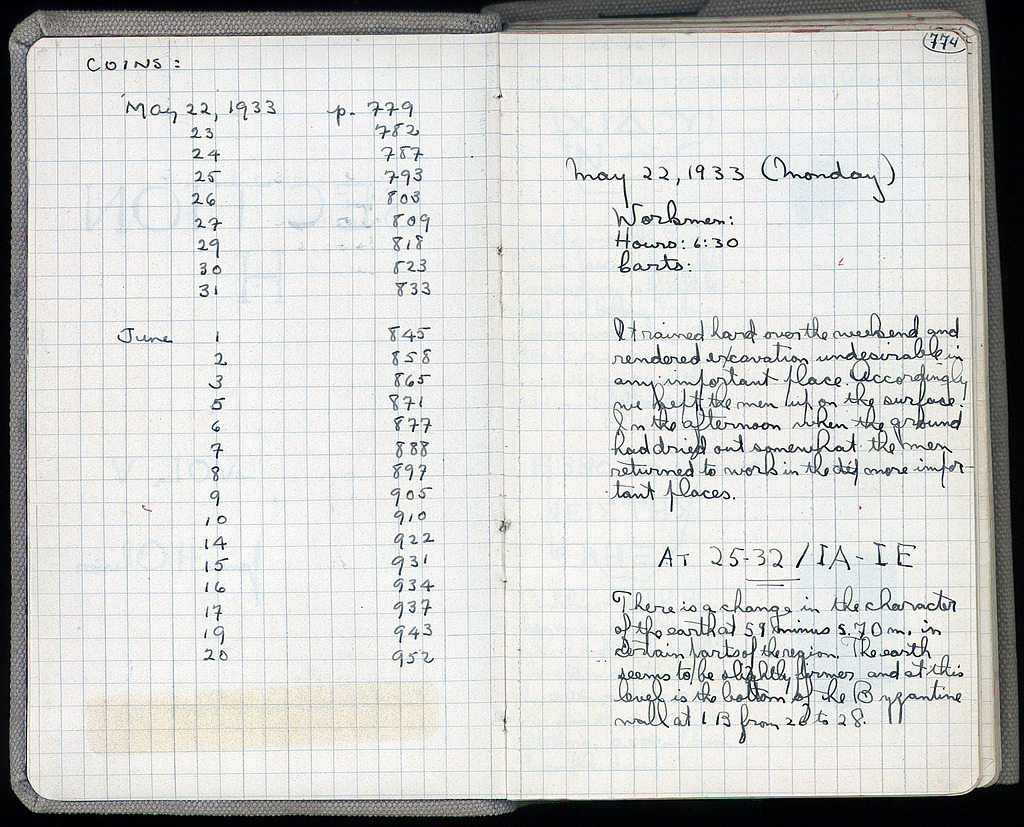 COINS:
May 22, 1933 p. 779
23 782
24 787
25 793
26 803
27 809
29 818
30 823
31 833
June 1 845
2 858
3 865
5 871
6 877
7 888
8 897
9 905
10 910
14 922
15 931
16 934
17 937
19 943
20 952
774
May 22, 1933 (Monday)
Workmen:
Hours: 6:30
Carts:
It rained hard over the weekend and
rendered excavation undesirable in
any important place. Accordingly
we kept the men up on the surface.
In the afternoon when the ground
had dried out somewhat the men
returned to work in the more impor-
tant places.
AT 25-32/IA-IE
There is a change in the character
of the earth at 59 minus 5.70 m. in
certain parts of the region. The earth
seems to be slightly firmer and at this
level is the bottom of the Byzantine
wall at IB from 26 to 28.